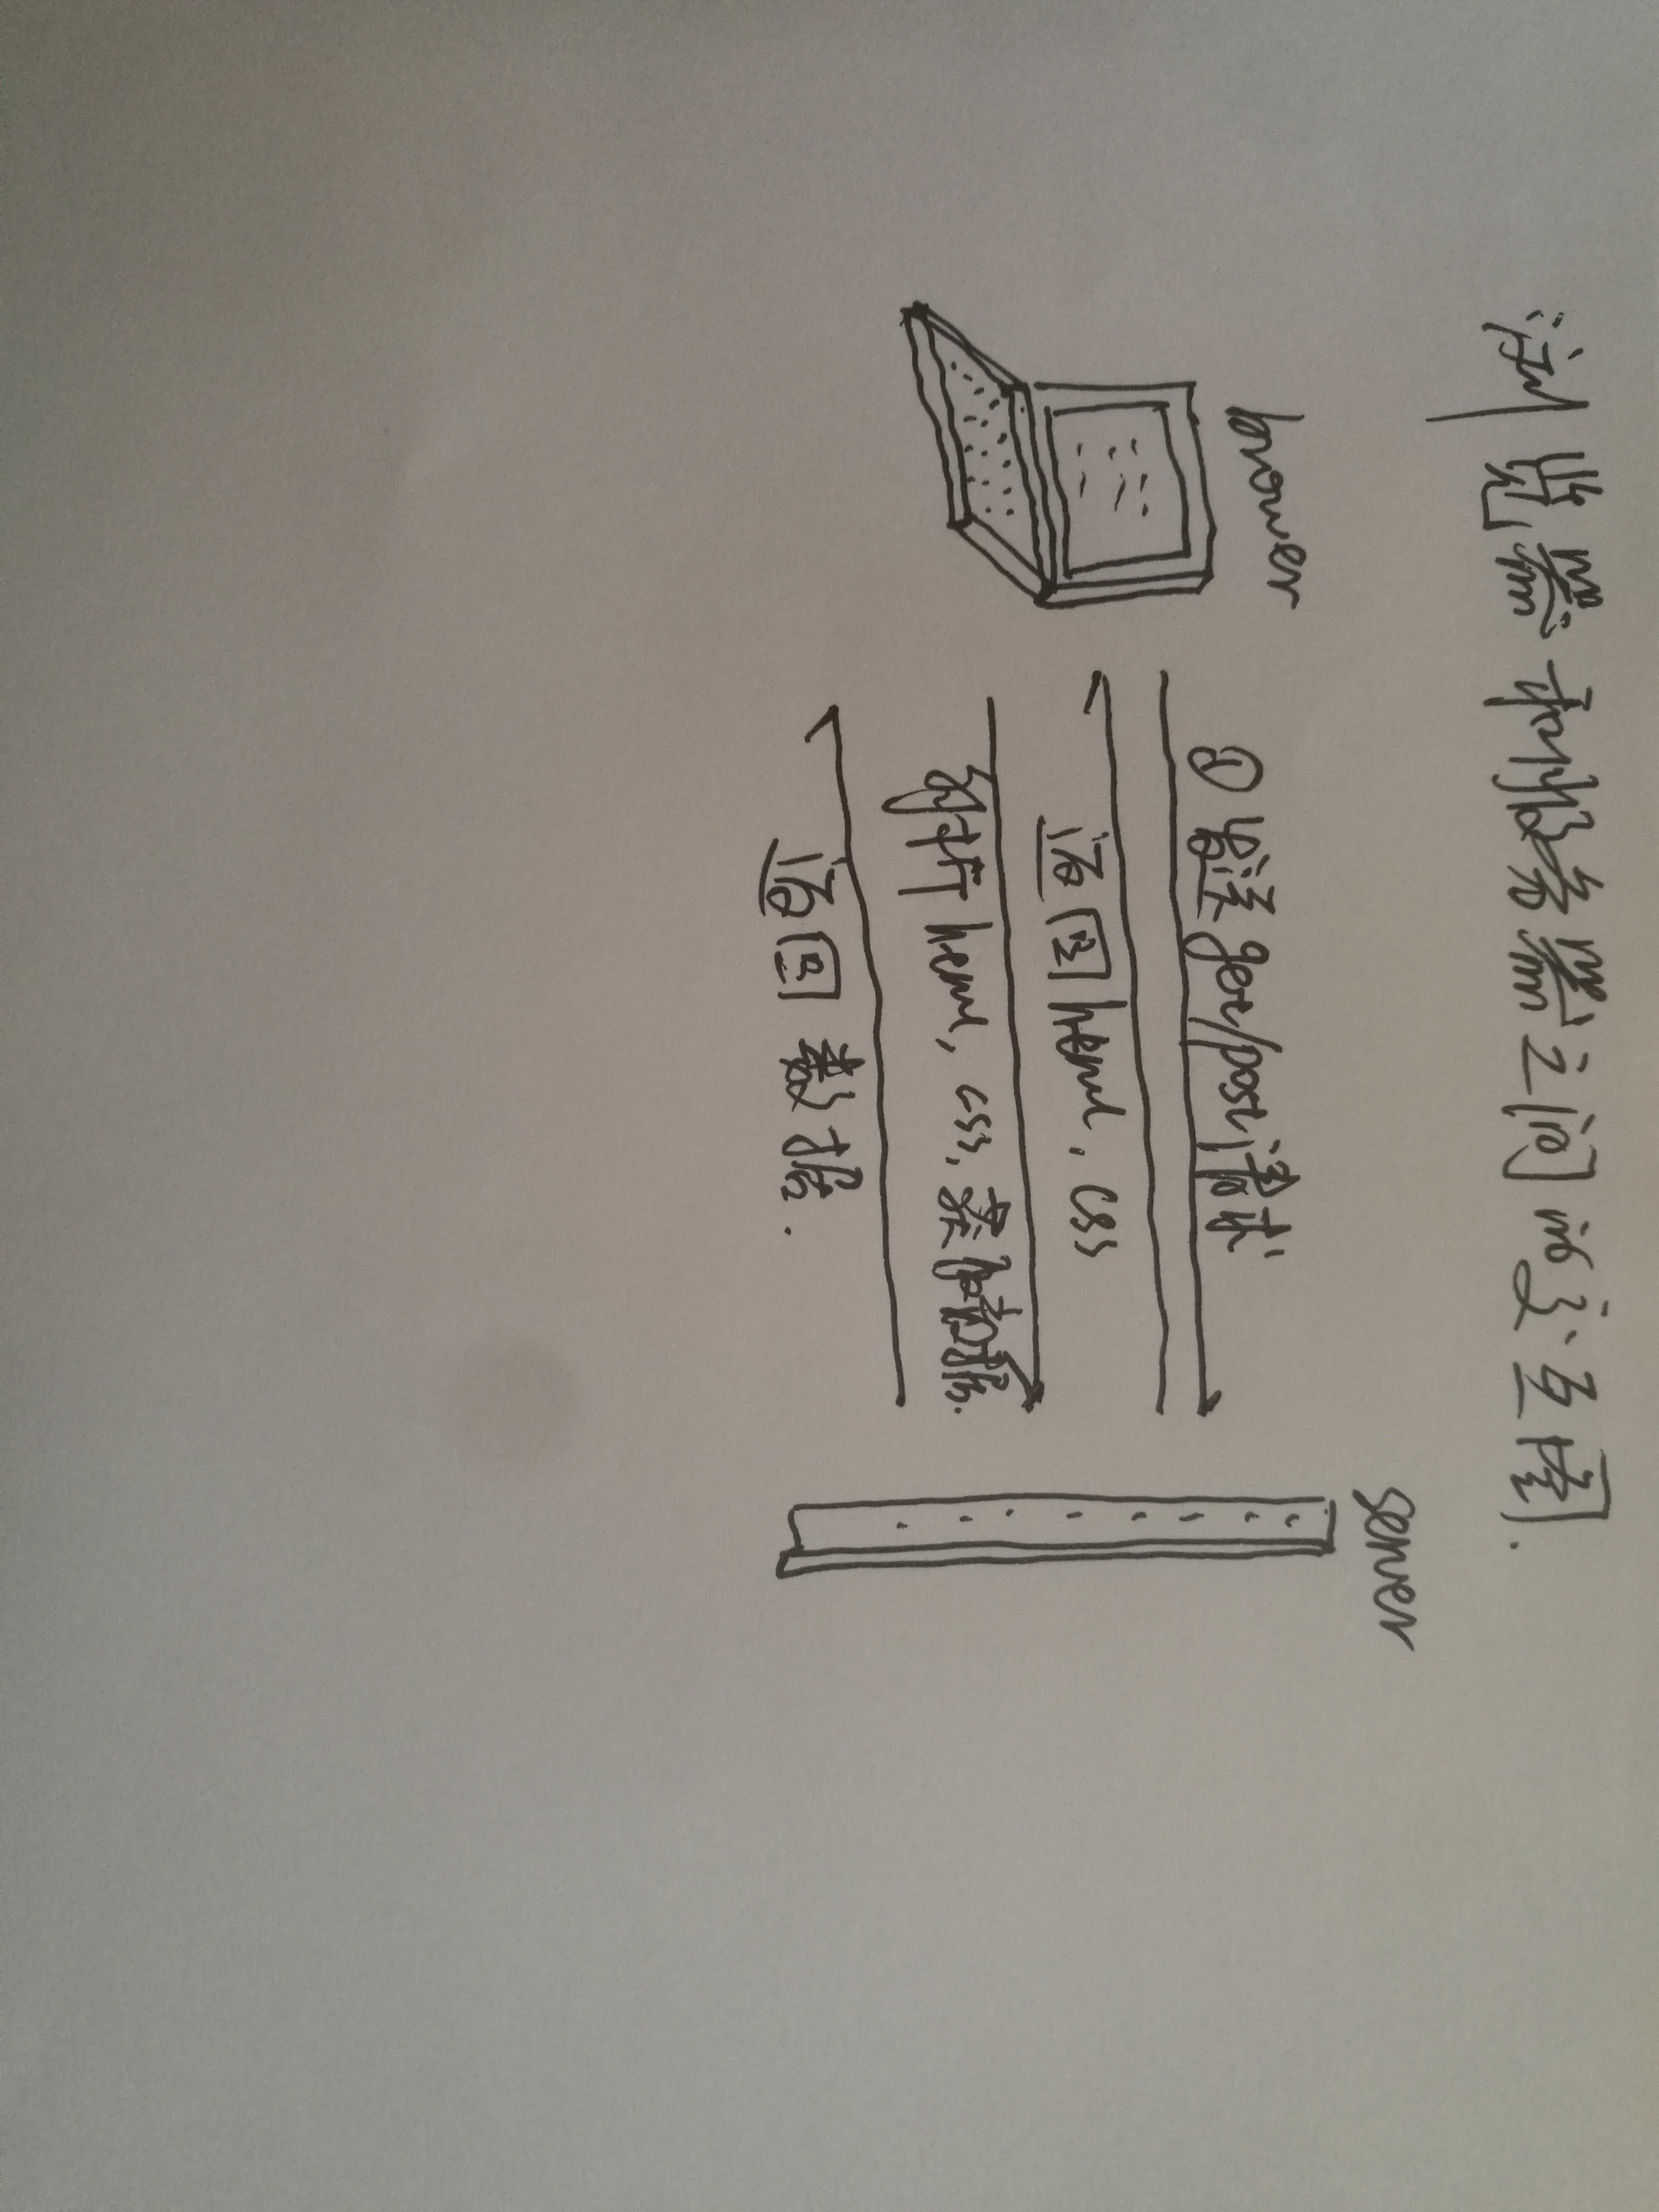 浏览器和服务器之间的交互图.
server
brower
① 发送get/post请求
返回html, css
解析html, css, 获取数据.
返回数据.